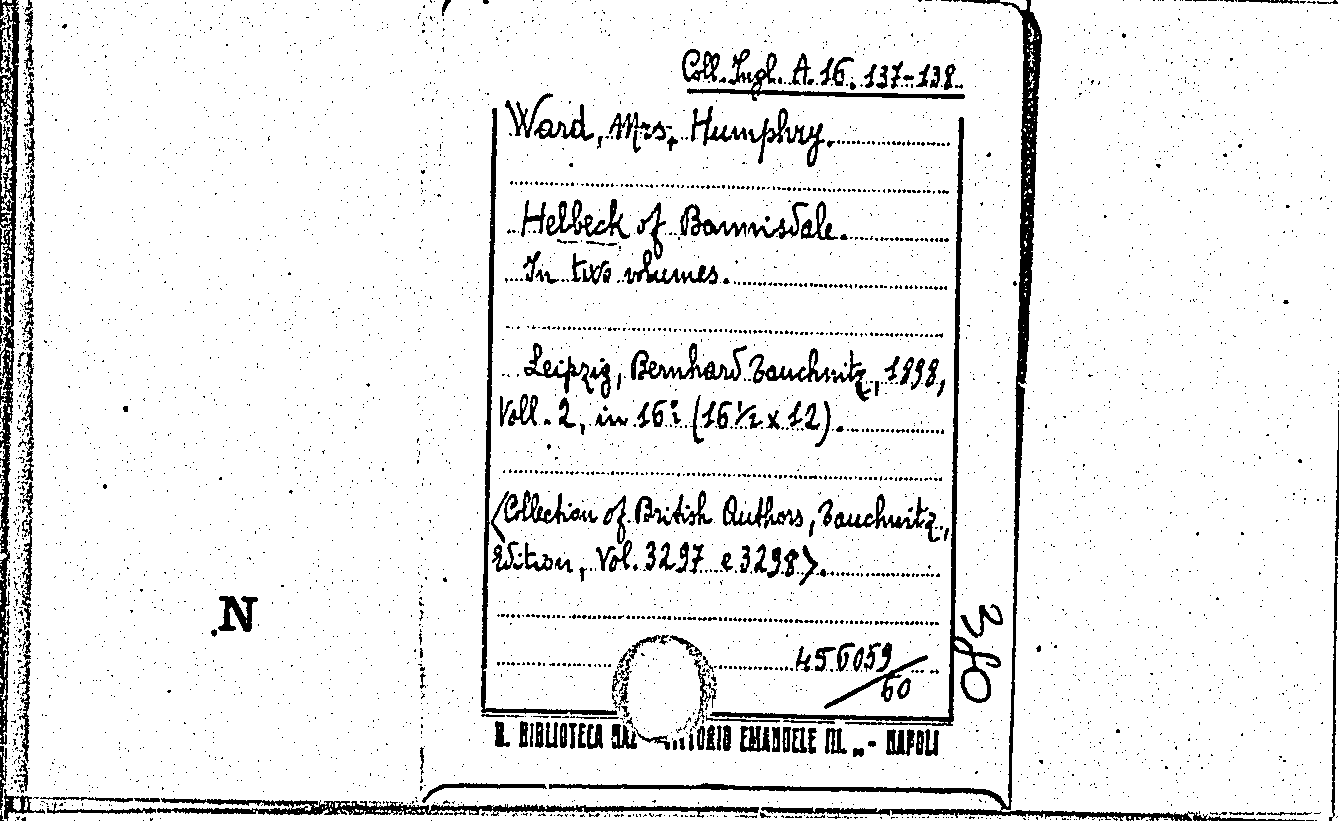 Coll. Ingl. A. 16. 137-138
Ward, Mrs, Humphry.
Helbeck of Bannisdale.
In two volumes.
Leipzig, Bernhard Tauchnitz, 1898,
Voll. 2, in 16° (16 1/2 x 12).
<Collection of British Authors, Tauchnitz,
Edition, Vol. 3297 e 3298>.
N
380
456059/60
R. BIBLIOTECA NAZ VITTORIO EMANUELE III. „ - NAPOLI